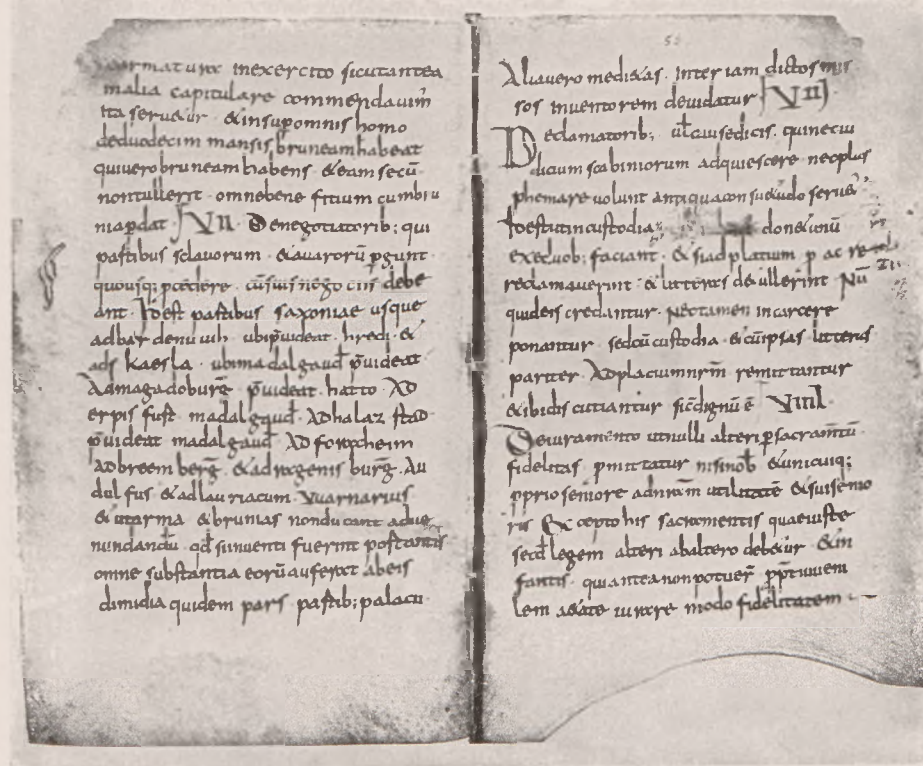 armaturae inexercito sicutantea
malia capitulare commendauim̄
Ita seruetur · &insup omnis homo
deduodecim mansis bruneamhabeat
quiuerobruneam habens · &eam secū
nontullerit · omnebene fitium cumbru
niapdat VII. Denegotiatorib; qui
partibus sclauorum · &auarorū p̄gunt
quousq; pcedere · cū suis negociis debe
ant · Id est partibus saxoniae usque
adbardenuuih · ubip̄uideat · hredi · &
ads kaesla · ubimadalgaud p̄uideat
Admagadoburg̅ · p̄uideat · hatto · AD
erpis furt madalgaud · ADhalaz stad
p̄uideat madalgaud · AD forxcheim
ADbreemberg̅ · &adragenis burg̅ · Au
dulfus &adlauriacum · Vuarnarius
&utarma &brunias nonducant adue
nundandū · qd̄ siinuenti fuerint portantis
omne substantia eorū auferat abeis
dimidia quidem pars · partib; palacii
50
Aliauero medi&as · inter iam dictos mis
sos inuentorem deuidatur VIII
Declamatorib; ul̄causedicis · quinecui
dicum scabiniorum adquiescere · necplus
phemare uolunt antiquaconsu&udo serue
Id estutincustodia don&unū
exeduob; faciant · &siadplatium p ac re
reclamauerint &litteras de&ullerint Nū
quideis credantur · nectamen incarcere
ponantur · sedcū custodia · &cūipsas litteras
pariter · Adplaciumnr̄m remittantur
&ibidiscutiantur sic̄dignū ē VIIII.
Deiuramento utnulli alteri p̄sacram̄tū
fidelitas · pmittatur nisinob &unicuiq;
pprioseniore adnr̄am utilitatē &suisenio
ris Exceptohis sacramentis quaeiuste
secd̄ legem alteri abaltero debetur · &in
fantis · quianteanonpotuer̄ ppt̄iuuem
lem a&ate iurare modo fidelitatem